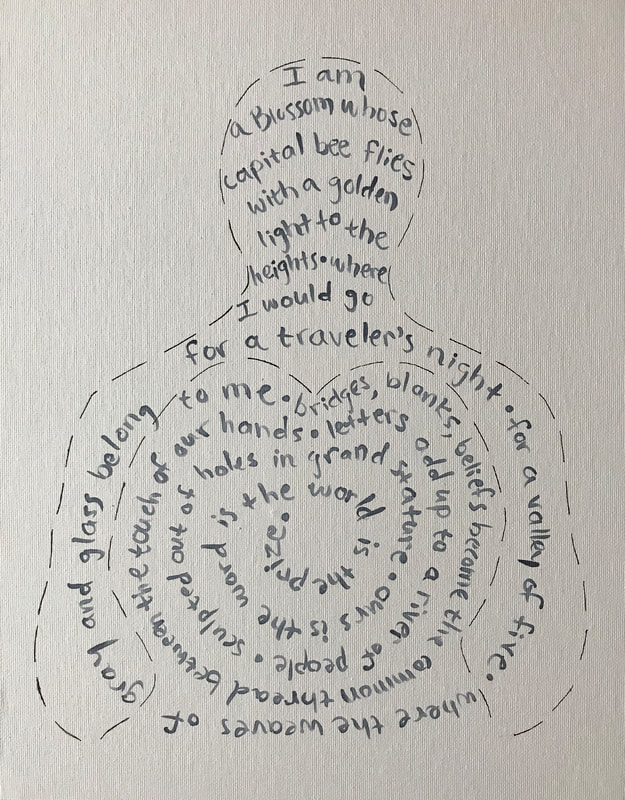 I am
a Blossom whose
capital bee flies
with a golden
light to the
heights. where
I would go
for a traveler's night. for a valley of five. where the weaves of gray and glass belong to me. bridges, blanks, beliefs become the common thread between the touch of our hands. letters add up to a river of people. sculpted out of holes in grand stature. ours is the word is the world is the prize.